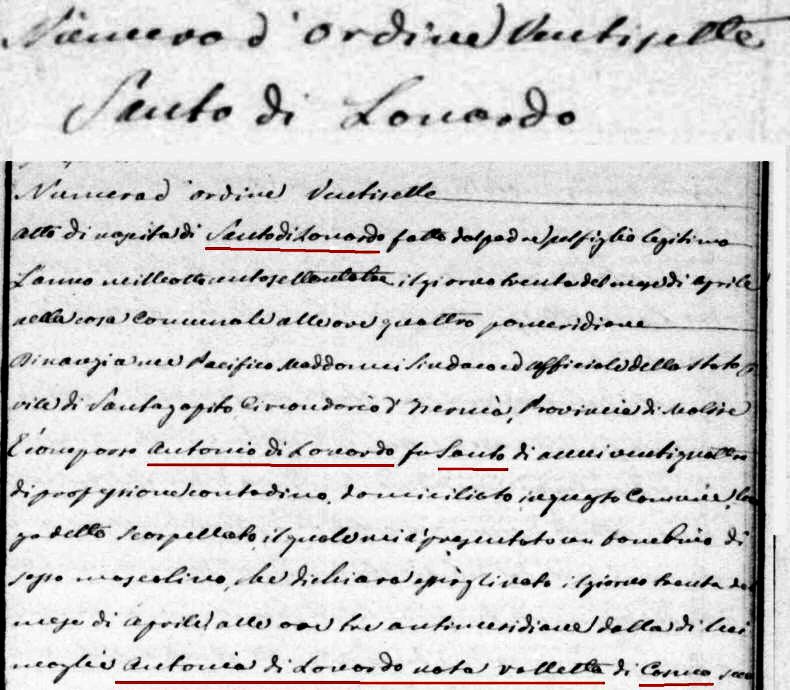 Numero d'ordine Ventisette
Santo di Lonardo
Numero d'ordine Ventisette
Atto di nascita di Santo di Lonardo fatto dal padre pel figlio legitimo
L'anno mille otto cento settanta il giorno trenta del mese di Aprile
nella casa Comunale alle ore quattro pomeridiane
Dinanzi a me Pacifico Maddonni Sindaco ed Officiale dello Stato
vile di Santagapito Circondario d'Isernia, Provincia di Molise
È comparso Antonio di Lonardo fu Santo di anni ventiquattro
di professione contadino, domiciliato in questo Comune, luo
go detto Scarpellato, il quale mi à presentato un bambino di
sesso mascolino, che dichiara essergli nato il giorno trenta del
mese di Aprile alle ore tre antimeridiane dalla di lui
moglie Antonia di Lonardo nata Valletta di Cosmo